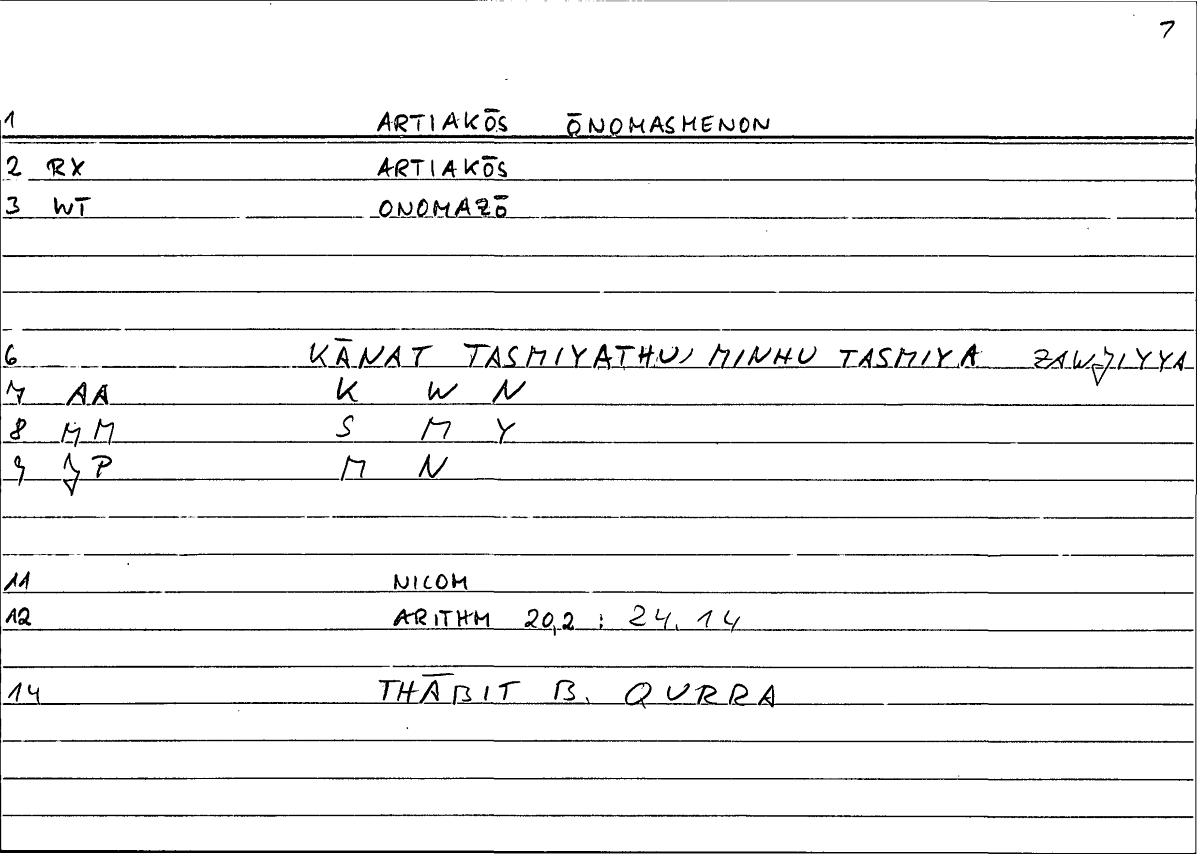 7
1 ARTIAKŌS ŌNOMASMENON
2 RX ARTIAKŌS
3 WT ONOMAZŌ
6 KĀNAT TASMIYATHU, MINHU TASMIYA ZAWJ̌IYYA
7 AA K W N
8 MM S M Y
9 J̌P M N
11 NICOM
12 ARITHM 20,2 : 24.14
14 THĀBIT B. QURRA